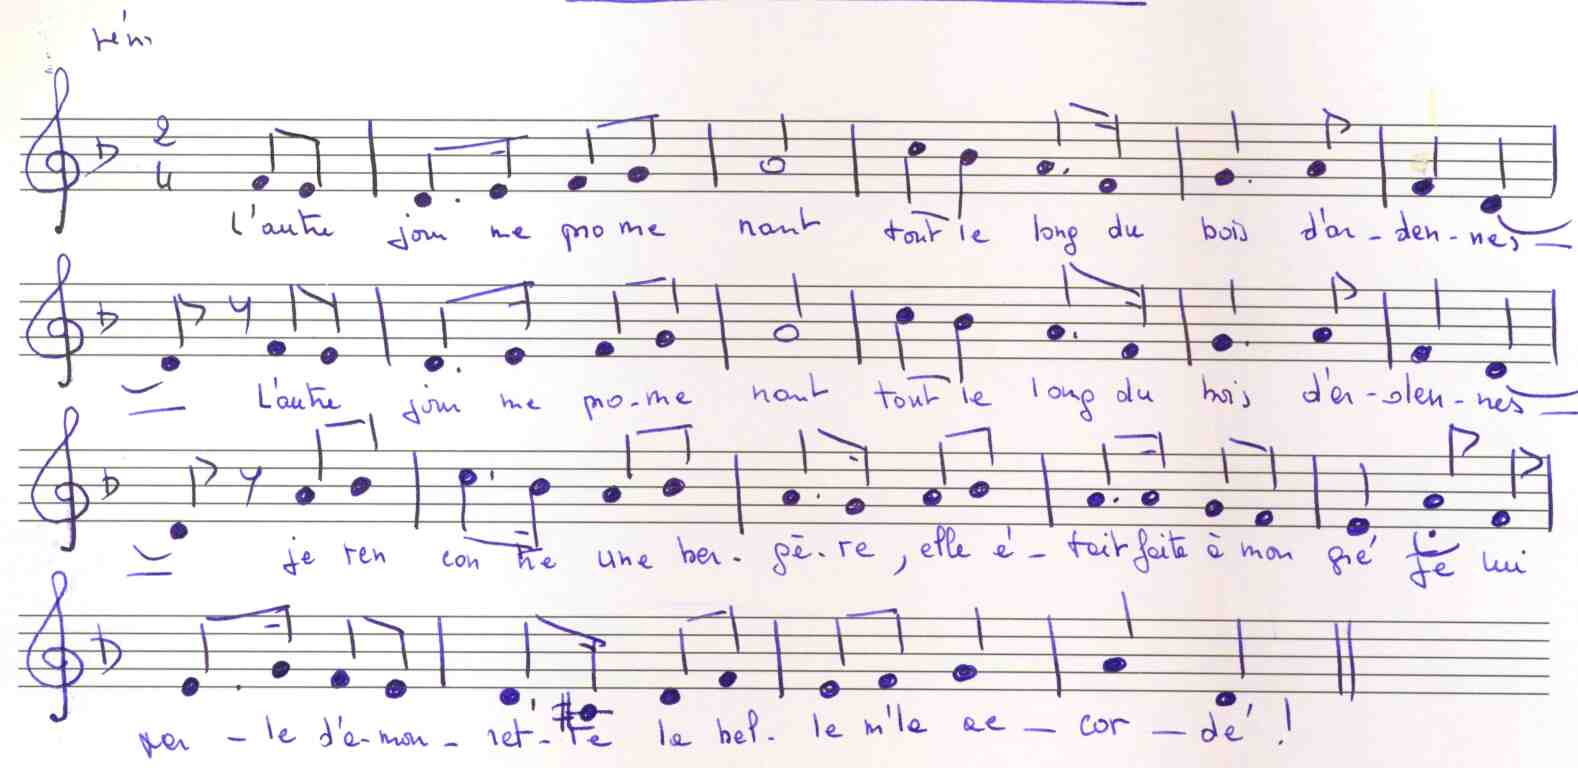 rém
2
4
L'autre jour me pro me nant tout le long du bois d'ar-den-nes
L'autre jour me pro-me nant tout le long du bois d'ar-den-nes
je ren con tre une ber-gè-re, elle é-tait faite à mon gré je lui
par-le d'a-mon-ret-te la bel-le m'la ac-cor-dé !